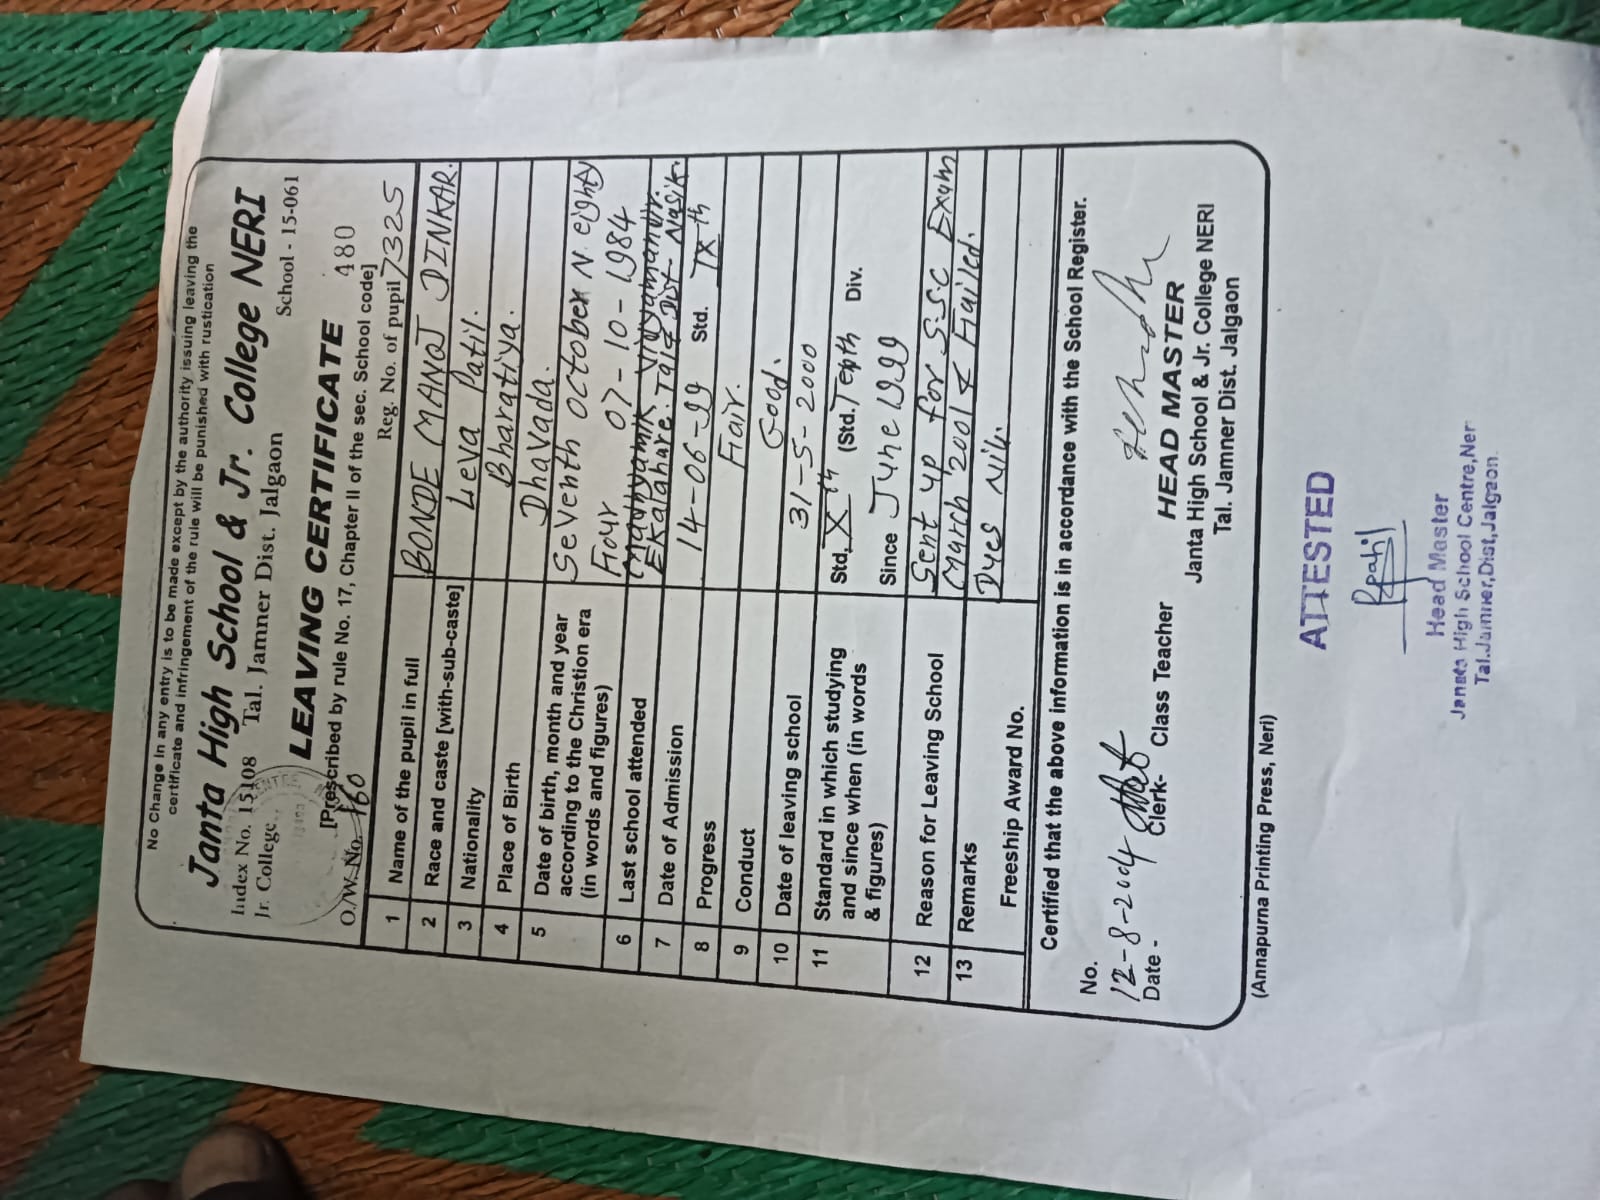 No Change in any entry is to be made except by the authority issuing leaving the
certificate and infringement of the rule will be punished with rustication
Janta High School & Jr. College NERI
Index No. 15108 Tal. Jamner Dist. Jalgaon School - 15-061
Jr. College
LEAVING CERTIFICATE 480
[Prescribed by rule No. 17, Chapter II of the sec. School code]
O/W. No. 160 Reg. No. of pupil 7325
1 Name of the pupil in full BONDE MANOJ DINKAR.
2 Race and caste [with-sub-caste] Leva Patil.
3 Nationality Bharatiya.
4 Place of Birth Dhavada.
5 Date of birth, month and year Seventh October N. eighty
according to the Christion era Four 07-10-1984
(in words and figures)
6 Last school attended Madhyamik Vidyamandir
Ekalahare. Tal & Dist- Nasik.
7 Date of Admission 14-06-99 Std. IXth
8 Progress Fair.
9 Conduct Good.
10 Date of leaving school 31-5-2000
11 Standard in which studying Std. Xth (Std. Tenth Div.
and since when (in words
& figures) Since June 1999
12 Reason for Leaving School Sent up for SSC Exam
13 Remarks March 2001 & Failed.
Freeship Award No. Dues Nil.
Certified that the above information is in accordance with the School Register.
No.
12-8-2004
Date - Clerk- Class Teacher HEAD MASTER
Janta High School & Jr. College NERI
Tal. Jamner Dist. Jalgaon
(Annapurna Printing Press, Neri)
ATTESTED
Rpatil
Head Master
Janata High School Centre, Neri
Tal.Jamner, Dist, Jalgaon.